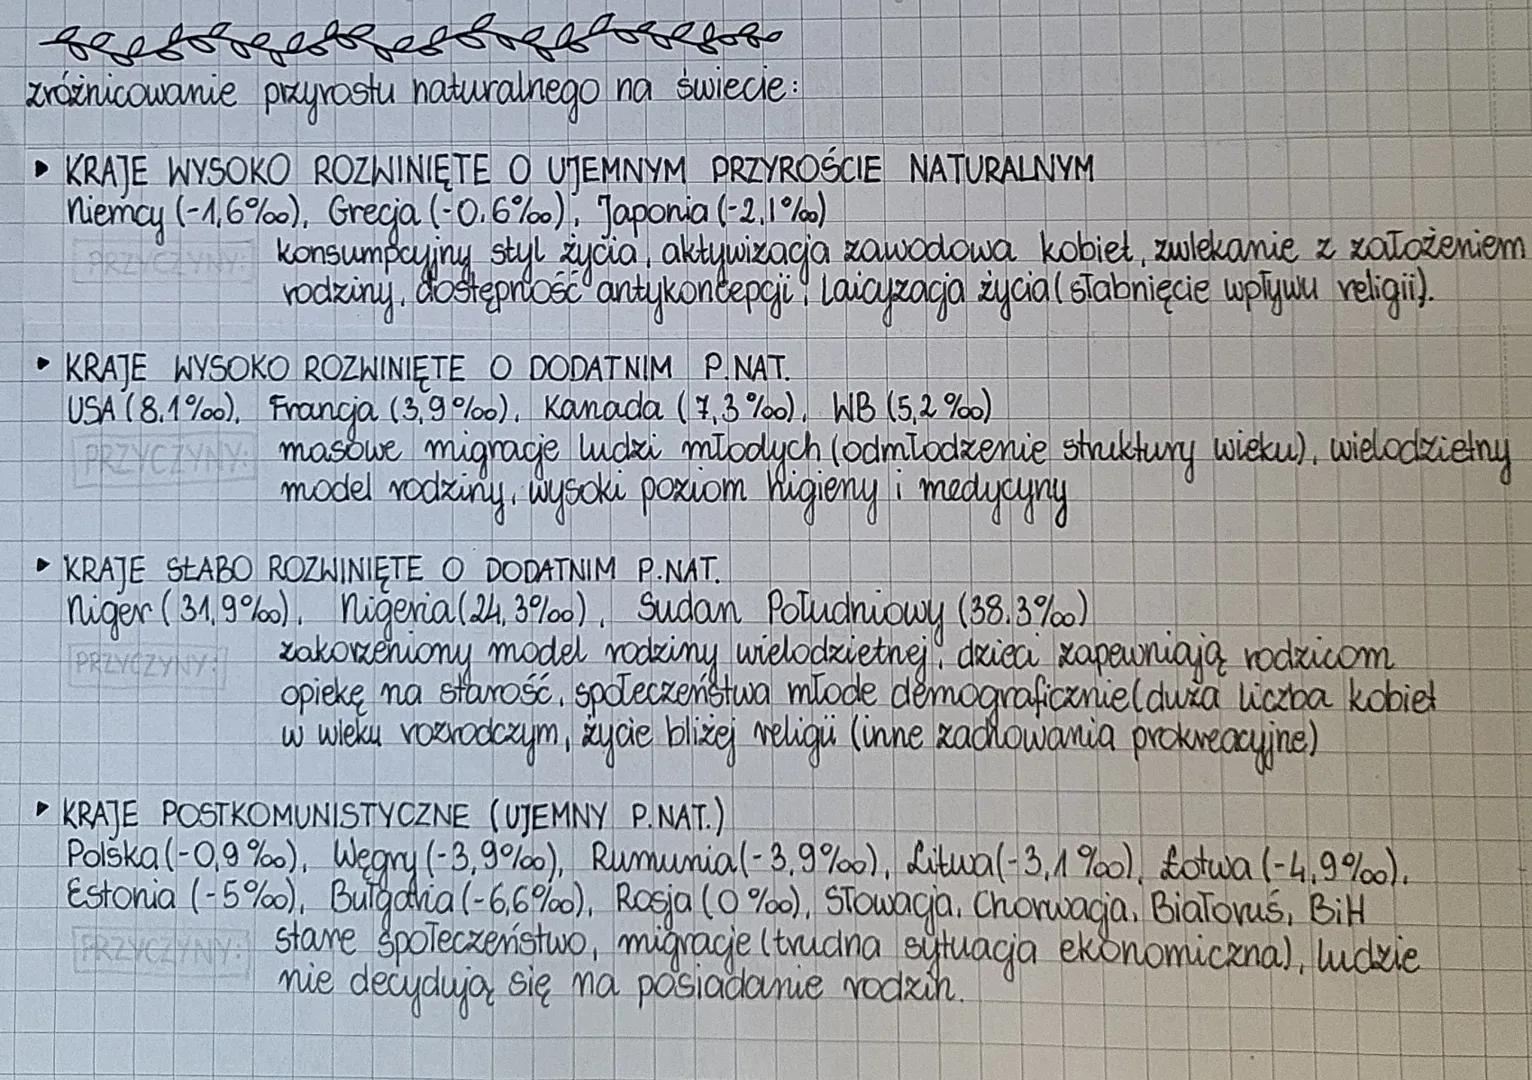 zróżnicowanie przyrostu naturalnego na świecie:
▸ KRAJE WYSOKO ROZWINIĘTE O UJEMNYM PRZYROŚCIE NATURALNYM
Niemcy (-1,6‰), Grecja (-0,6‰), Japonia (-2,1‰)
PRZYCZYNY: konsumpcyjny styl życia, aktywizacja zawodowa kobiet, zwlekanie z założeniem
rodziny, dostępność antykoncepcji, laicyzacja życia (słabnięcie wpływu religii).
• KRAJE WYSOKO ROZWINIĘTE O DODATNIM P.NAT.
USA (8,1‰), Francja (3,9‰), Kanada (7,3‰), WB (5,2‰)
PRZYCZYNY: masowe migracje ludzi młodych (odmłodzenie struktury wieku), wielodzietny
model rodziny, wysoki poziom higieny i medycyny
▸ KRAJE SŁABO ROZWINIĘTE O DODATNIM P.NAT.
Niger (31,9‰), Nigeria (24,3‰), Sudan Południowy (38.3‰)
PRZYCZYNY: zakorzeniony model rodziny wielodzietnej, dzieci zapewniają rodzicom
opiekę na starość, społeczeństwa młode demograficznie (duża liczba kobiet
w wieku rozrodczym, życie bliżej religii (inne zachowania prokreacyjne)
▸ KRAJE POSTKOMUNISTYCZNE (UJEMNY P.NAT.)
Polska (-0,9‰), Węgry (-3,9‰), Rumunia (-3,9‰), Litwa (-3,1‰), Łotwa (-4,9‰),
Estonia (-5‰), Bułgaria (-6,6‰), Rosja (0‰), Słowacja, Chorwacja, Białoruś, BiH
PRZYCZYNY: stare społeczeństwo, migracje (trudna sytuacja ekonomiczna), ludzie
nie decydują się na posiadanie rodzin.